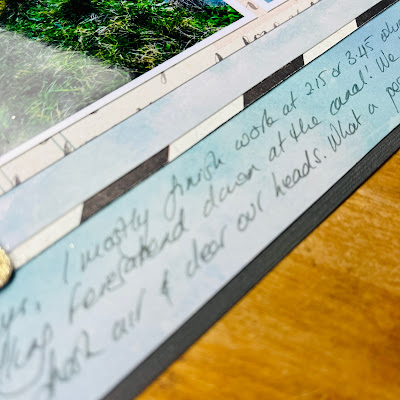 I mostly finish work at 2.15 or 3.45
down at the canal! We
fresh air & clear our heads. What a